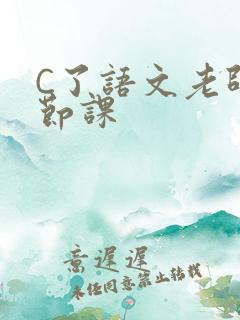 C了語文老師
節課
意遲遲
未經同意禁止轉載